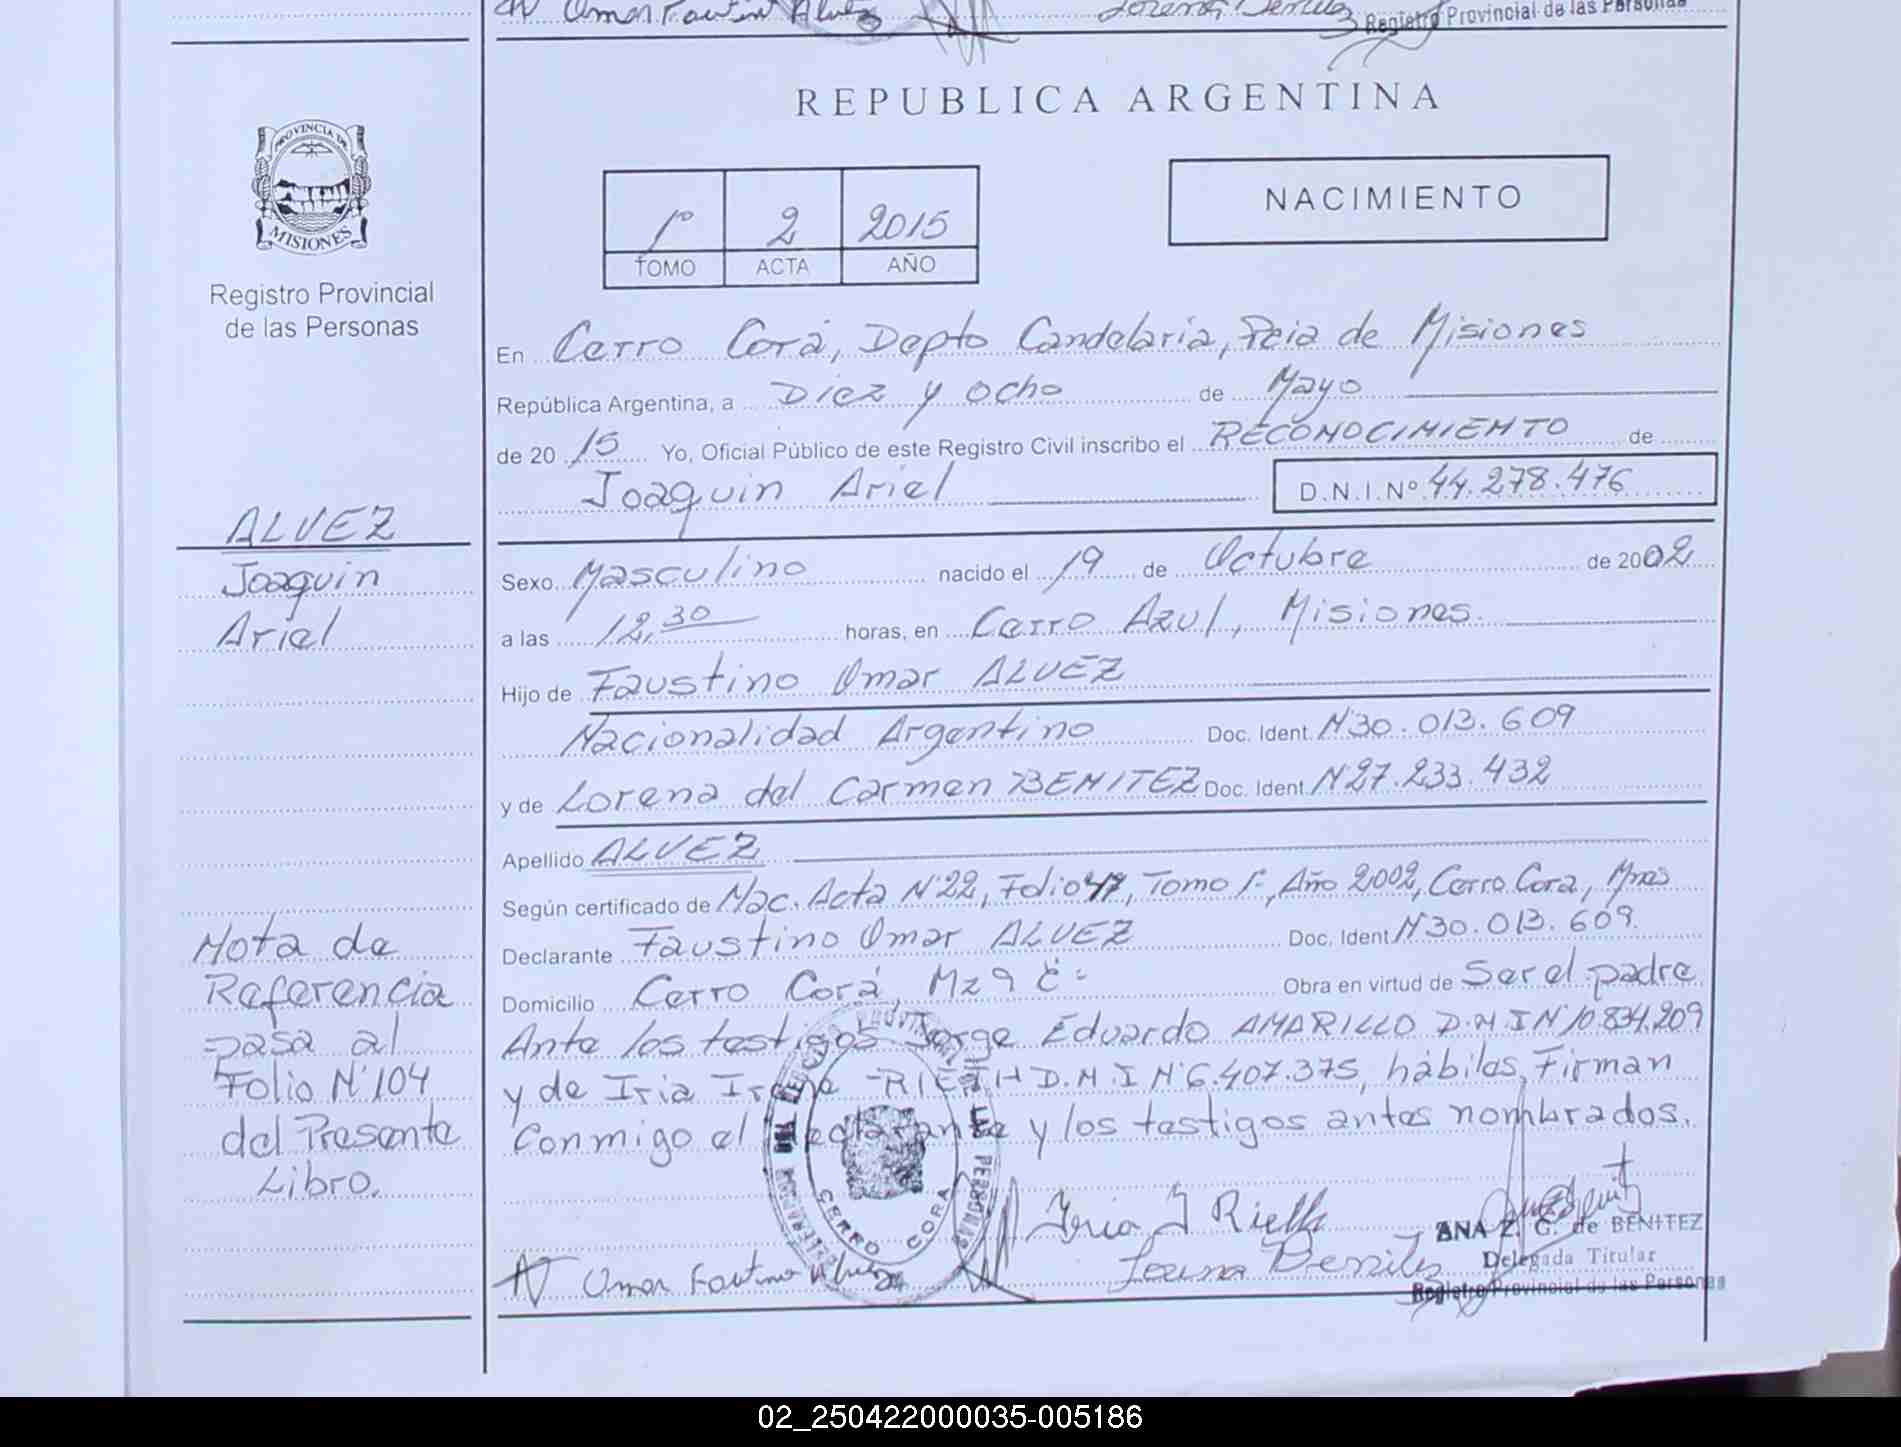 Omar Faustino Alvez
Lorena Benitez
Registro Provincial de las Personas
REPUBLICA ARGENTINA
PROVINCIA DE
MISIONES
Registro Provincial
de las Personas
1º 2 2015
TOMO ACTA AÑO
NACIMIENTO
En Cerro Corá, Depto Candelaria, Pcia de Misiones
República Argentina, a Diez y ocho de Mayo
de 20 15 Yo, Oficial Público de este Registro Civil inscribo el RECONOCIMIENTO de
Joaquin Ariel D.N.I. Nº 44.278.476
ALVEZ
Joaquin
Ariel
Sexo Masculino nacido el 19 de Octubre de 2002
a las 12,30 horas, en Cerro Azul, Misiones.
Hijo de Faustino Omar ALVEZ
Nacionalidad Argentino Doc. Ident. Nº 30.013.609
y de Lorena del Carmen BENITEZ Doc. Ident. Nº 27.233.432
Apellido ALVEZ
Según certificado de Nac. Acta Nº 22, Folio 47, Tomo 1º, Año 2002, Cerro Cora, Mnes
Declarante Faustino Omar ALVEZ Doc. Ident. Nº 30.013.609.
Domicilio Cerro Corá, Mz 9 C- Obra en virtud de Ser el padre
Ante los testigos Jorge Eduardo AMARILLO D.N.I Nº 10.834.209
y de Iria Irene D.N.I Nº 6.407.375, hábiles, Firman
Conmigo el declarante y los testigos antes nombrados.
Nota de
Referencia
pasa al
Folio Nº 104
del Presente
Libro.
CERRO CORA
Iria I Rieth
Omar Faustino Alvez
Lorena Benitez
ANA Z. G. de BENITEZ
Delegada Titular
Registro Provincial de las Personas
02_250422000035-005186